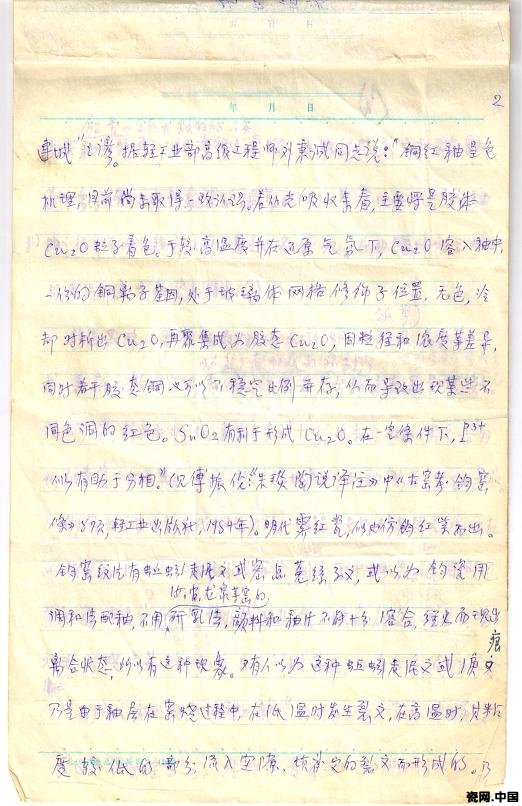 年 月 日
2
之谤。据轻工业部高级工程师刘秉诚同志说："铜红釉呈色
机理,目前尚未取得一致认识。若从光吸收来看,主要呼是胶体
Cu₂O粒子着色。于较高温度并在还原气氛下,Cu₂O溶入釉中,
一价的铜离子基因,处于玻璃体网络修饰子位置,无色,冷
却时析出Cu₂O,再聚集成为胶态Cu₂O,因粒径和浓度等差异,
同时若干胶态铜也可以不稳定比例并存,从而导致出现某些不
同色调的红色。SnO₂有利于形成Cu₂O。在一定条件下,P³⁺
似有助于分相。"(见傅振伦《朱琰陶说译注》中《古窑考·钧窑
条》87页,轻工业出版社,1984年)。明代霁红瓷,似也仿钧红
钧窑纹片有蚯蚓走泥文或菟丝文,或以为钧瓷用
调和法配釉,不用所乳法,颜料和釉汁不能十分溶合,经火而现出
离合状态,所以有这种现象。又有人以为这种蚯蚓走泥文或痕文
乃是由于釉层在窑烧过程中,在低温时发生裂文,在高温时,其粘
度较低的部分流入空隙、填补它的裂文而形成的。乃
瓷网.中国